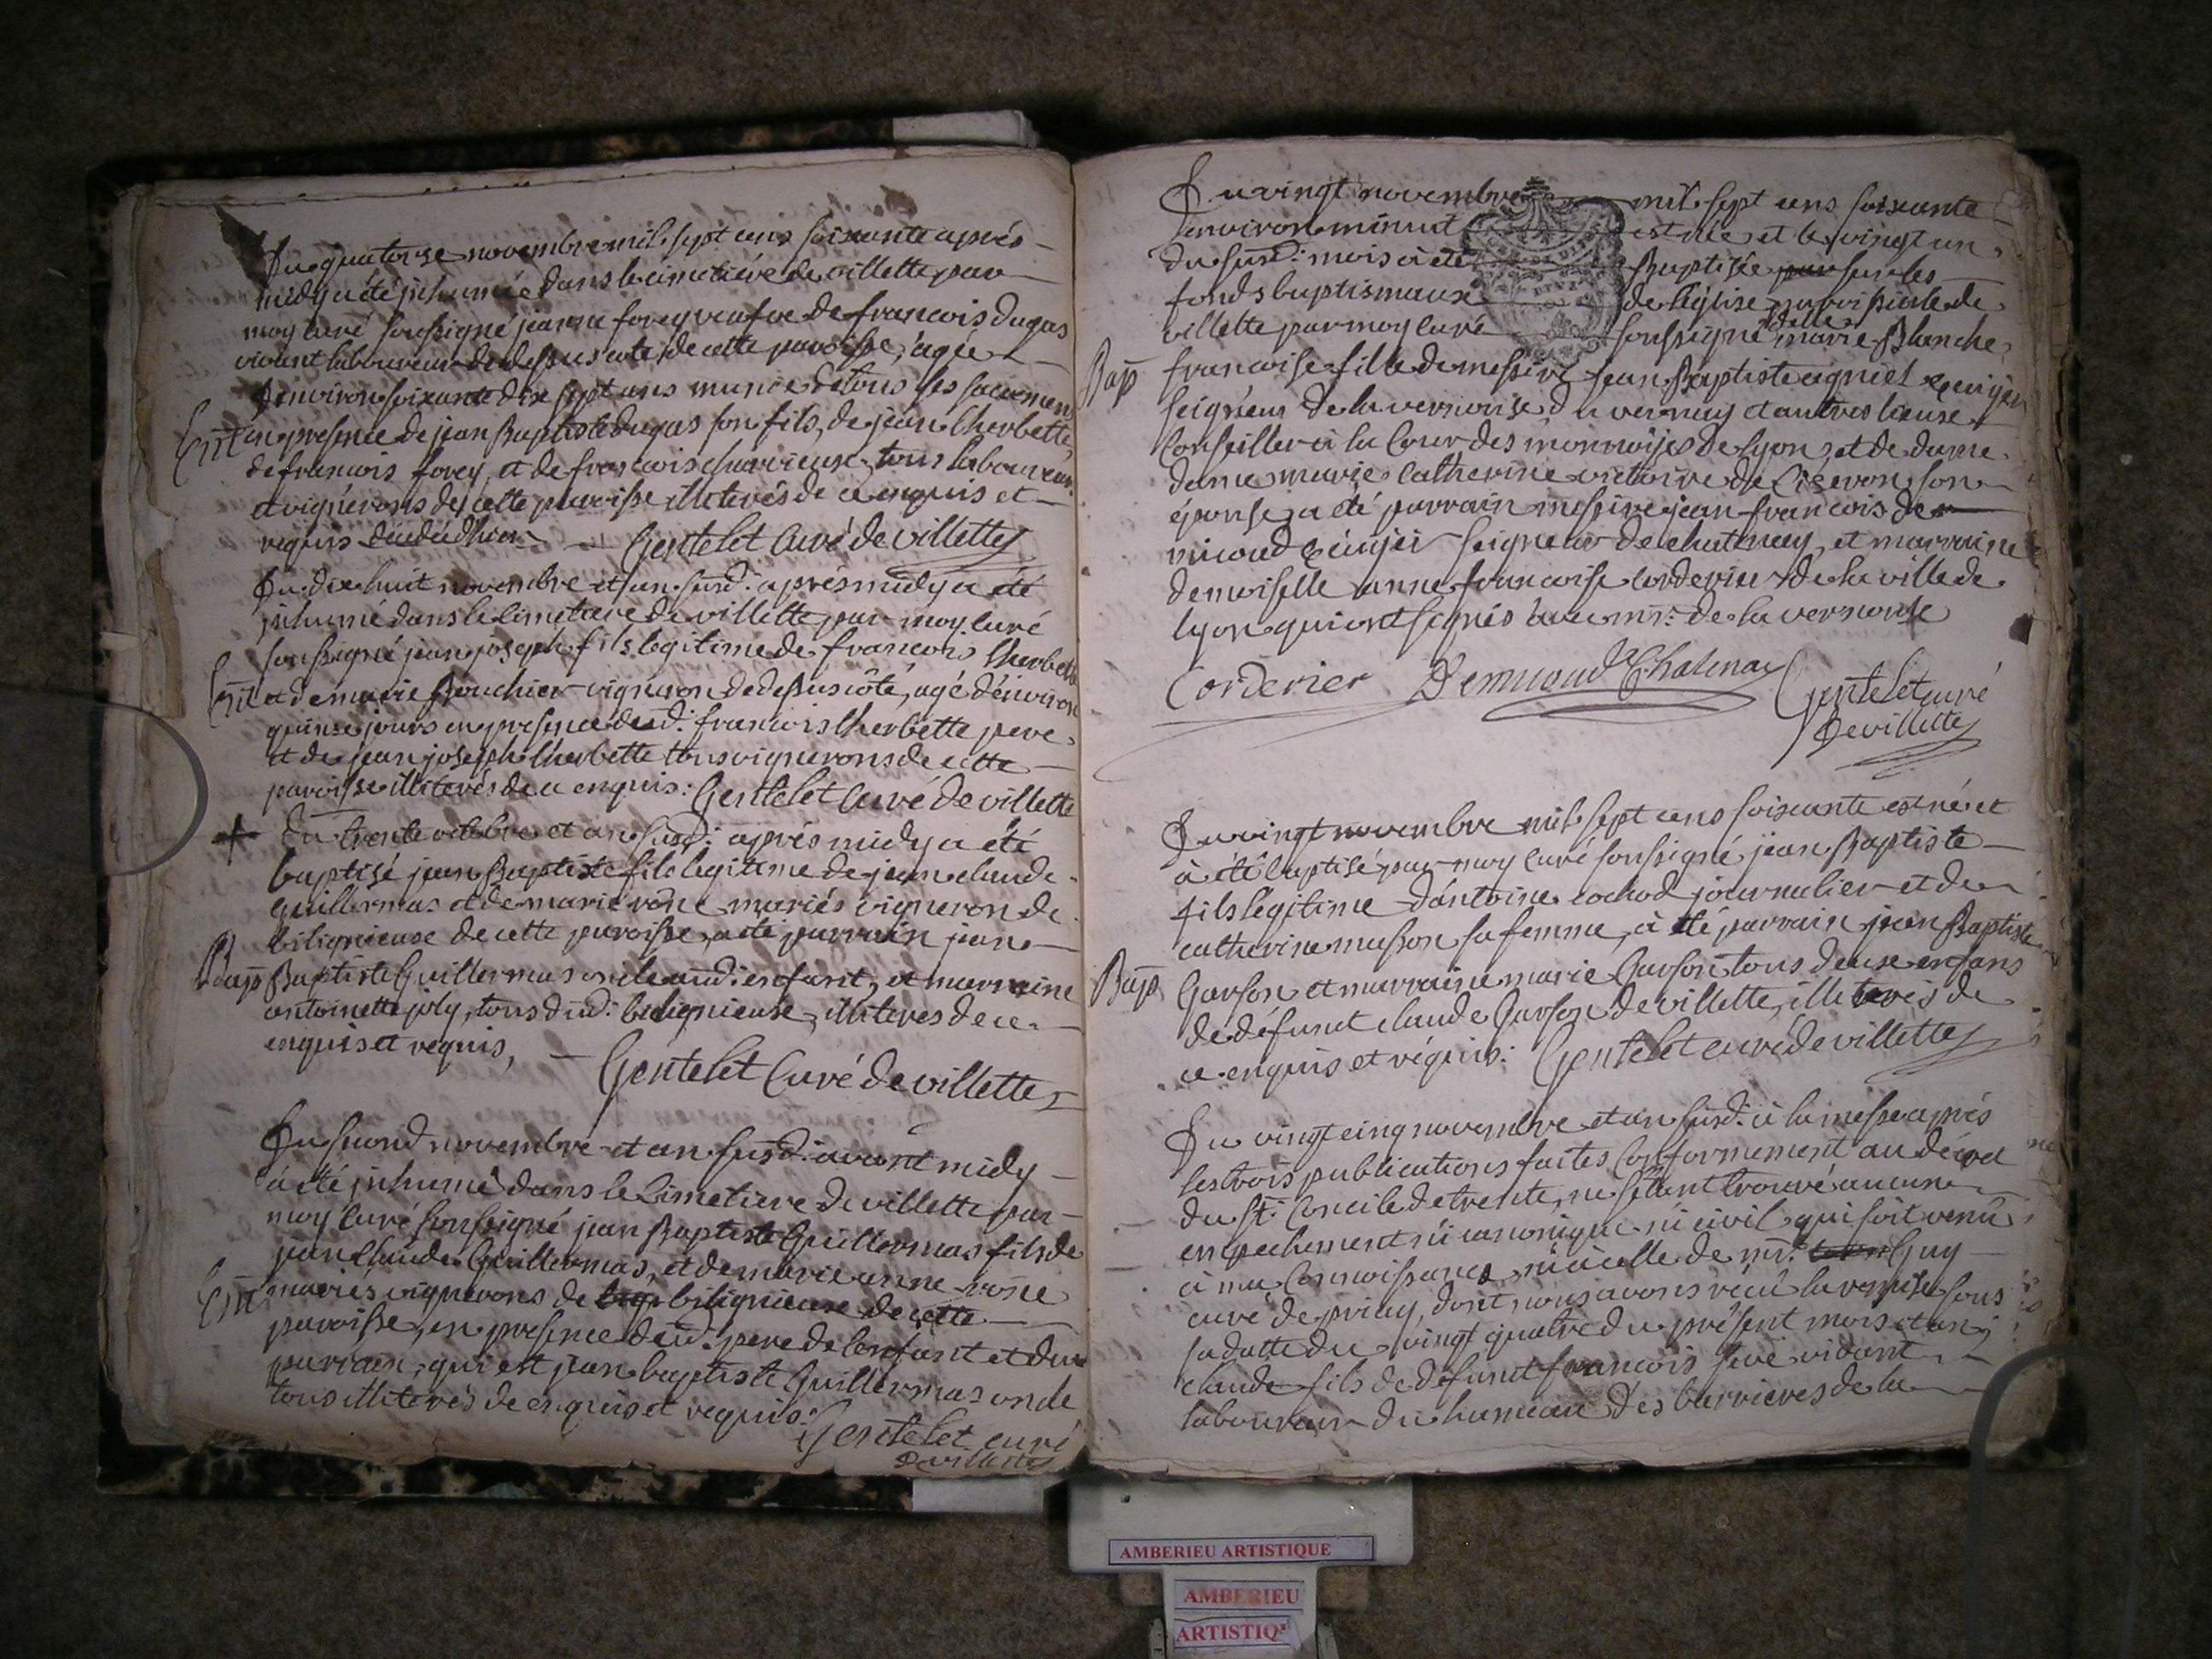 Du quatorze novembre mil sept cens soixante après
midy a été inhumée dans le cimetiére de villette par
moy curé soussigné jeanne forey veufve de francois dugas
vivant laboureur de dessus cote de cette paroisse, agée
denviron soixante dix sept ans munie de tous les sacremens
Ent en presence de jean Baptiste dugas son fils, de jean lherbette,
de francois forey, et de francois charvieux tous laboureurs
et vignérons de cette paroisse illiterés de ce enquis et
requis
Gentelet Curé de villette
Du dix huit novembre et an susd: après midy a été
inhumé dans le Cimetiere de villette par moy curé
soussigné jean joseph fils legitime de francois lherbette
Ent et de marie Bouchier vigneron de dessus côté, agé dénviron
quinse jours en presence dud: francois lherbette pere
et de jean joseph lherbette tous vignerons de cette
paroisse illiterés de ce enquis: Gentelet Curé de villette
+ Du trente octobre et an susd: après midy a été
baptisé jean Baptiste fils legitime de jean claude
guillermas et de marie rône mariés vigneron de
bilignieux de cette paroisse, a été parrain jean
Bap Baptiste Guillermas oncle aud: enfant, et marraine
antoinette joly, tous dud: bilignieux, illiterés de ce
enquis et requis,
Gentelet Curé de villette
Du second novembre et an susd: avant midy
à été inhumé dans le Cimetiere de villette par
moy curé soussigné jean Baptiste Guillermas fils de
jean Claude Guillermas, et de marie anne rône
Ent mariés vignerons de bilignieux de cette
paroisse, en presence dud: pere de lenfant et du
parrain, qui est jean baptiste Guillermas oncle
tous illiterés de enquis et requis:
Gentelet curé
de villette
Du vingt novembre mil sept cens soixante
denviron minuit est née et le vingt un
du susd: mois à été Baptisée par sur les
fonds baptismaux de leglise paroissiale de
villette par moy curé soussigné delle marie Blanche
Bap francoise fille de messire jean Baptiste agniel Ecuyer
seigneur de la vernouse du vernay et autres lieux
Conseiller à la Cour des monnoyes de lyon, et de dame
dame marie catherine victoire de Ciseron son
épouse, a été parrain messire jean francois de
micoud Ecuyer seigneur de chatenay, et marraine
demoiselle anne francoise corderier de la ville de
lyon qui ont signés avec mr: de la vernouse
Corderier Demicoud Chatenay Gentelet curé
de villette
Du vingt novembre mil sept cens soixante est né et
à été baptisé par moy curé soussigné jean Baptiste
fils légitime dántoine cochod journalier et de
catherine musson sa femme, à été parrain jean Baptiste
Bap Garson et marraine marie Garson tous deux enfans
de défunt claude Garson de villette, illiterés de
ce enquis et réquis: Gentelet curé de villette
Du vingt cinq novembre et an susd: à la messe après
les trois publications faites Conformement au décret
du St: Concile de trente, ne sétant trouvé aucun
empechement ni canonique ni civil qui soit venû
à ma Connoissance ni à celle de mr: Guy
curé de priay, dont nous avons récû la remise sous
sa datte du vingt quatre du présent mois et an
claude fils de défunt francois fevé vivant
laboureur du hameau des barrieres de la
AMBERIEU ARTISTIQUE
AMBERIEU
ARTISTIQ